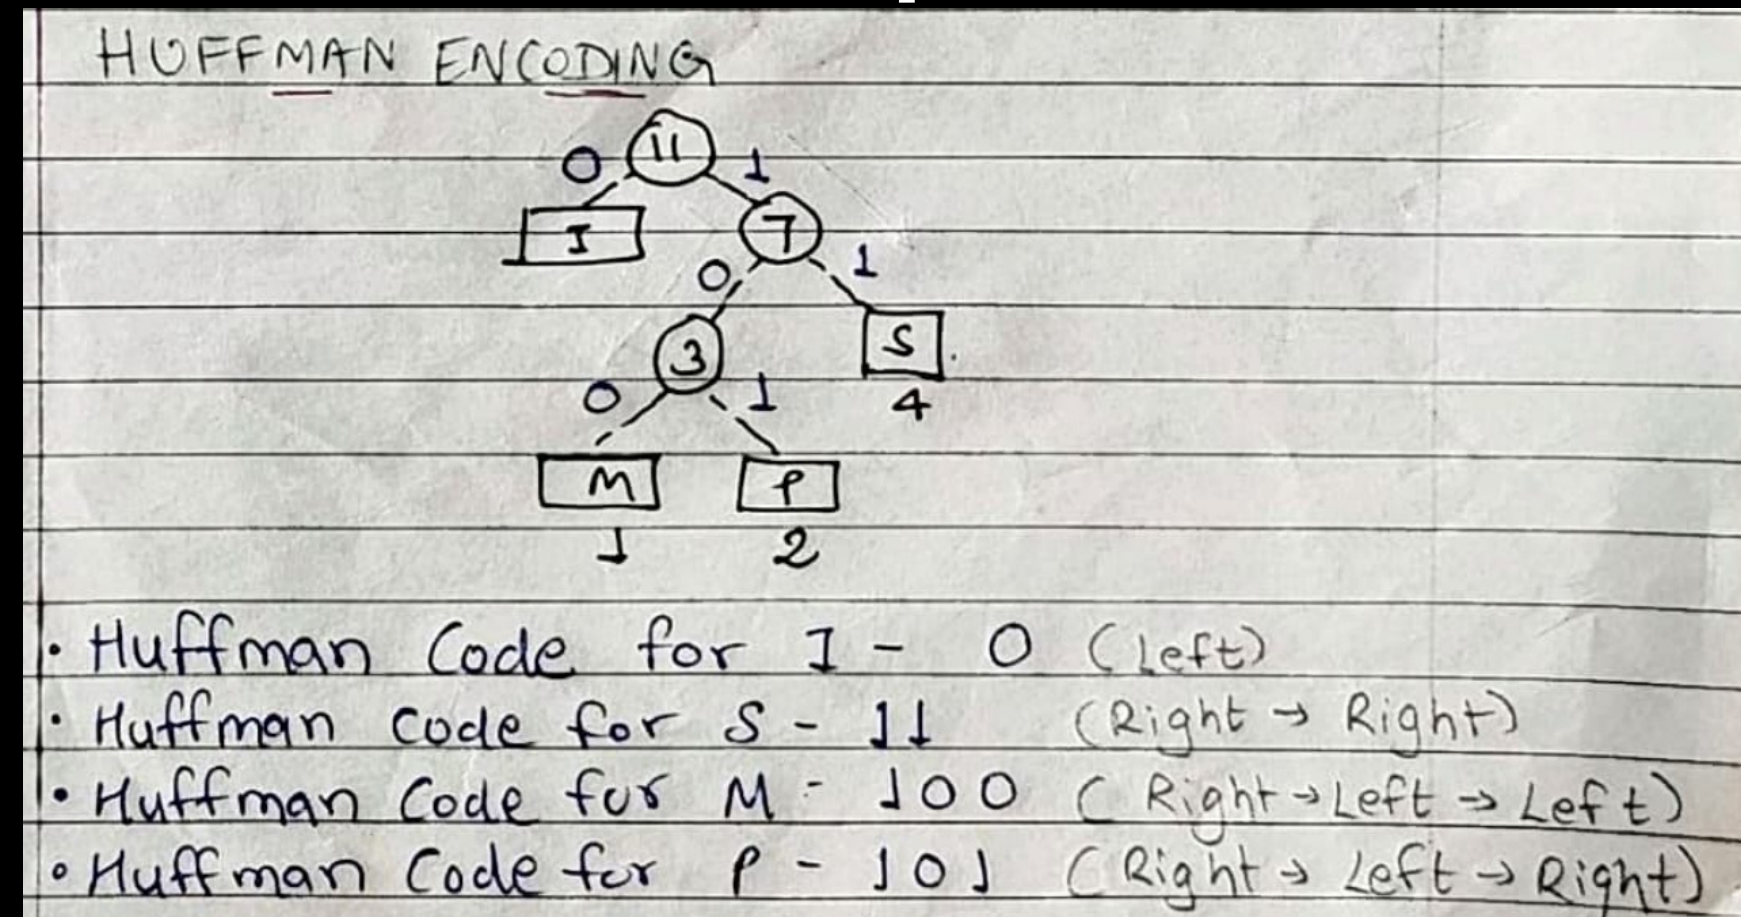 HUFFMAN ENCODING
11
0 1
I 7
0 1
3 S
0 1 4
M P
1 2
• Huffman Code for I - 0 (Left)
• Huffman Code for S - 11 (Right → Right)
• Huffman Code for M - 100 (Right → Left → Left)
• Huffman Code for P - 101 (Right → Left → Right)